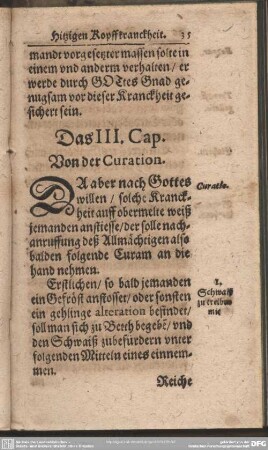 Hitzigen Kopffkranckheit. 35
mandt vorgesetzter massen solte in
einem vnd anderm verhalten / er
werde durch GOttes Gnad ge-
nugsam vor dieser Kranckheit ge-
sichert sein.
Das III. Cap.
Von der Curation.
DA aber nach Gottes
willen / solche Kranck-
heit auff obermelte weiß
jemanden anstiesse / der solle nach
anruffung deß Allmächtigen also
balden folgende Curam an die
hand nehmen.
Curatio.
Erstlichen / so bald jemanden
ein Gefröst anstosset / oder sonsten
ein gehlinge alteration befindet /
soll man sich zu Beth begebē / vnd
den Schwaiß zubefürdern vnter
folgenden Mitteln eines einnem-
men.
1.
Schwaiß
zutreibē
Reiche